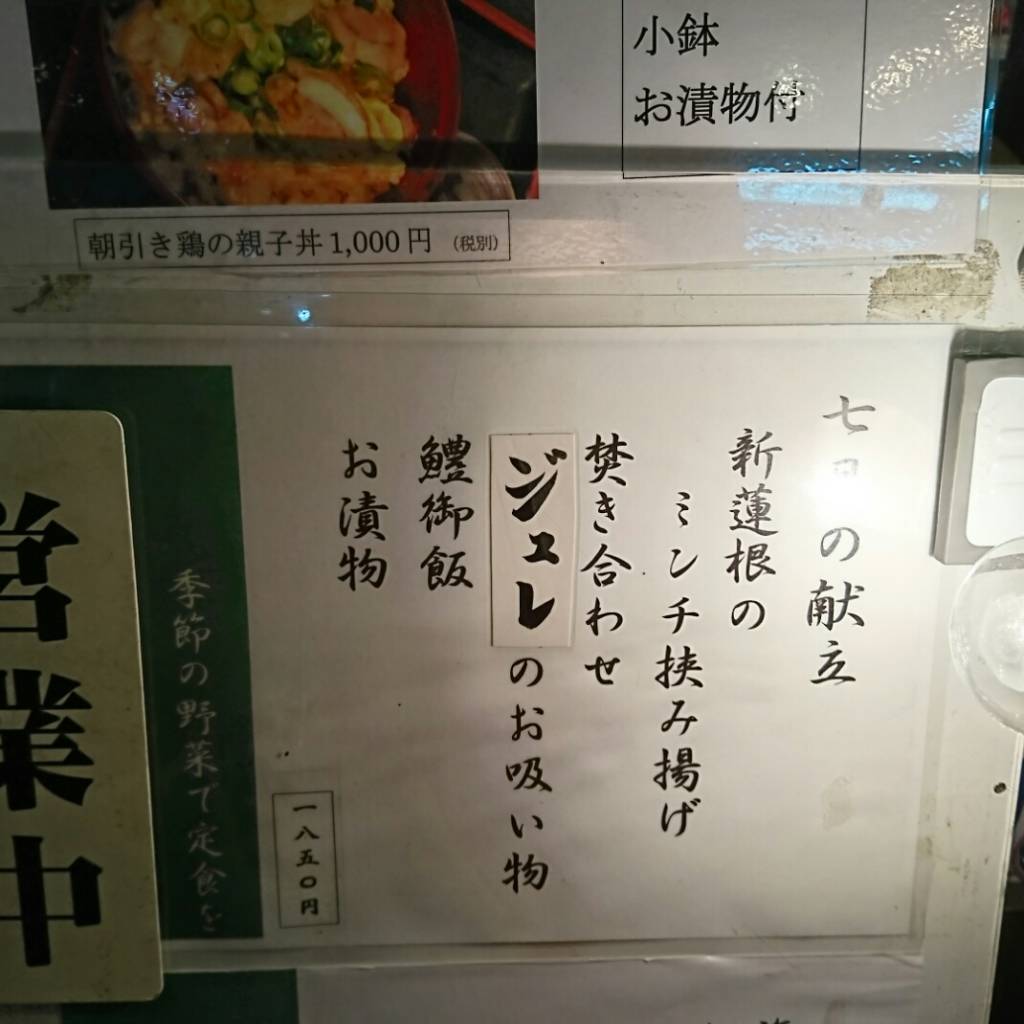 小鉢
お漬物付
朝引き鶏の親子丼1,000円（税別）
七月の献立
新蓮根の
ミンチ挟み揚げ
焚き合わせ
ジュレのお吸い物
鱧御飯
お漬物
一八五〇円
季節の野菜で定食を
営業中